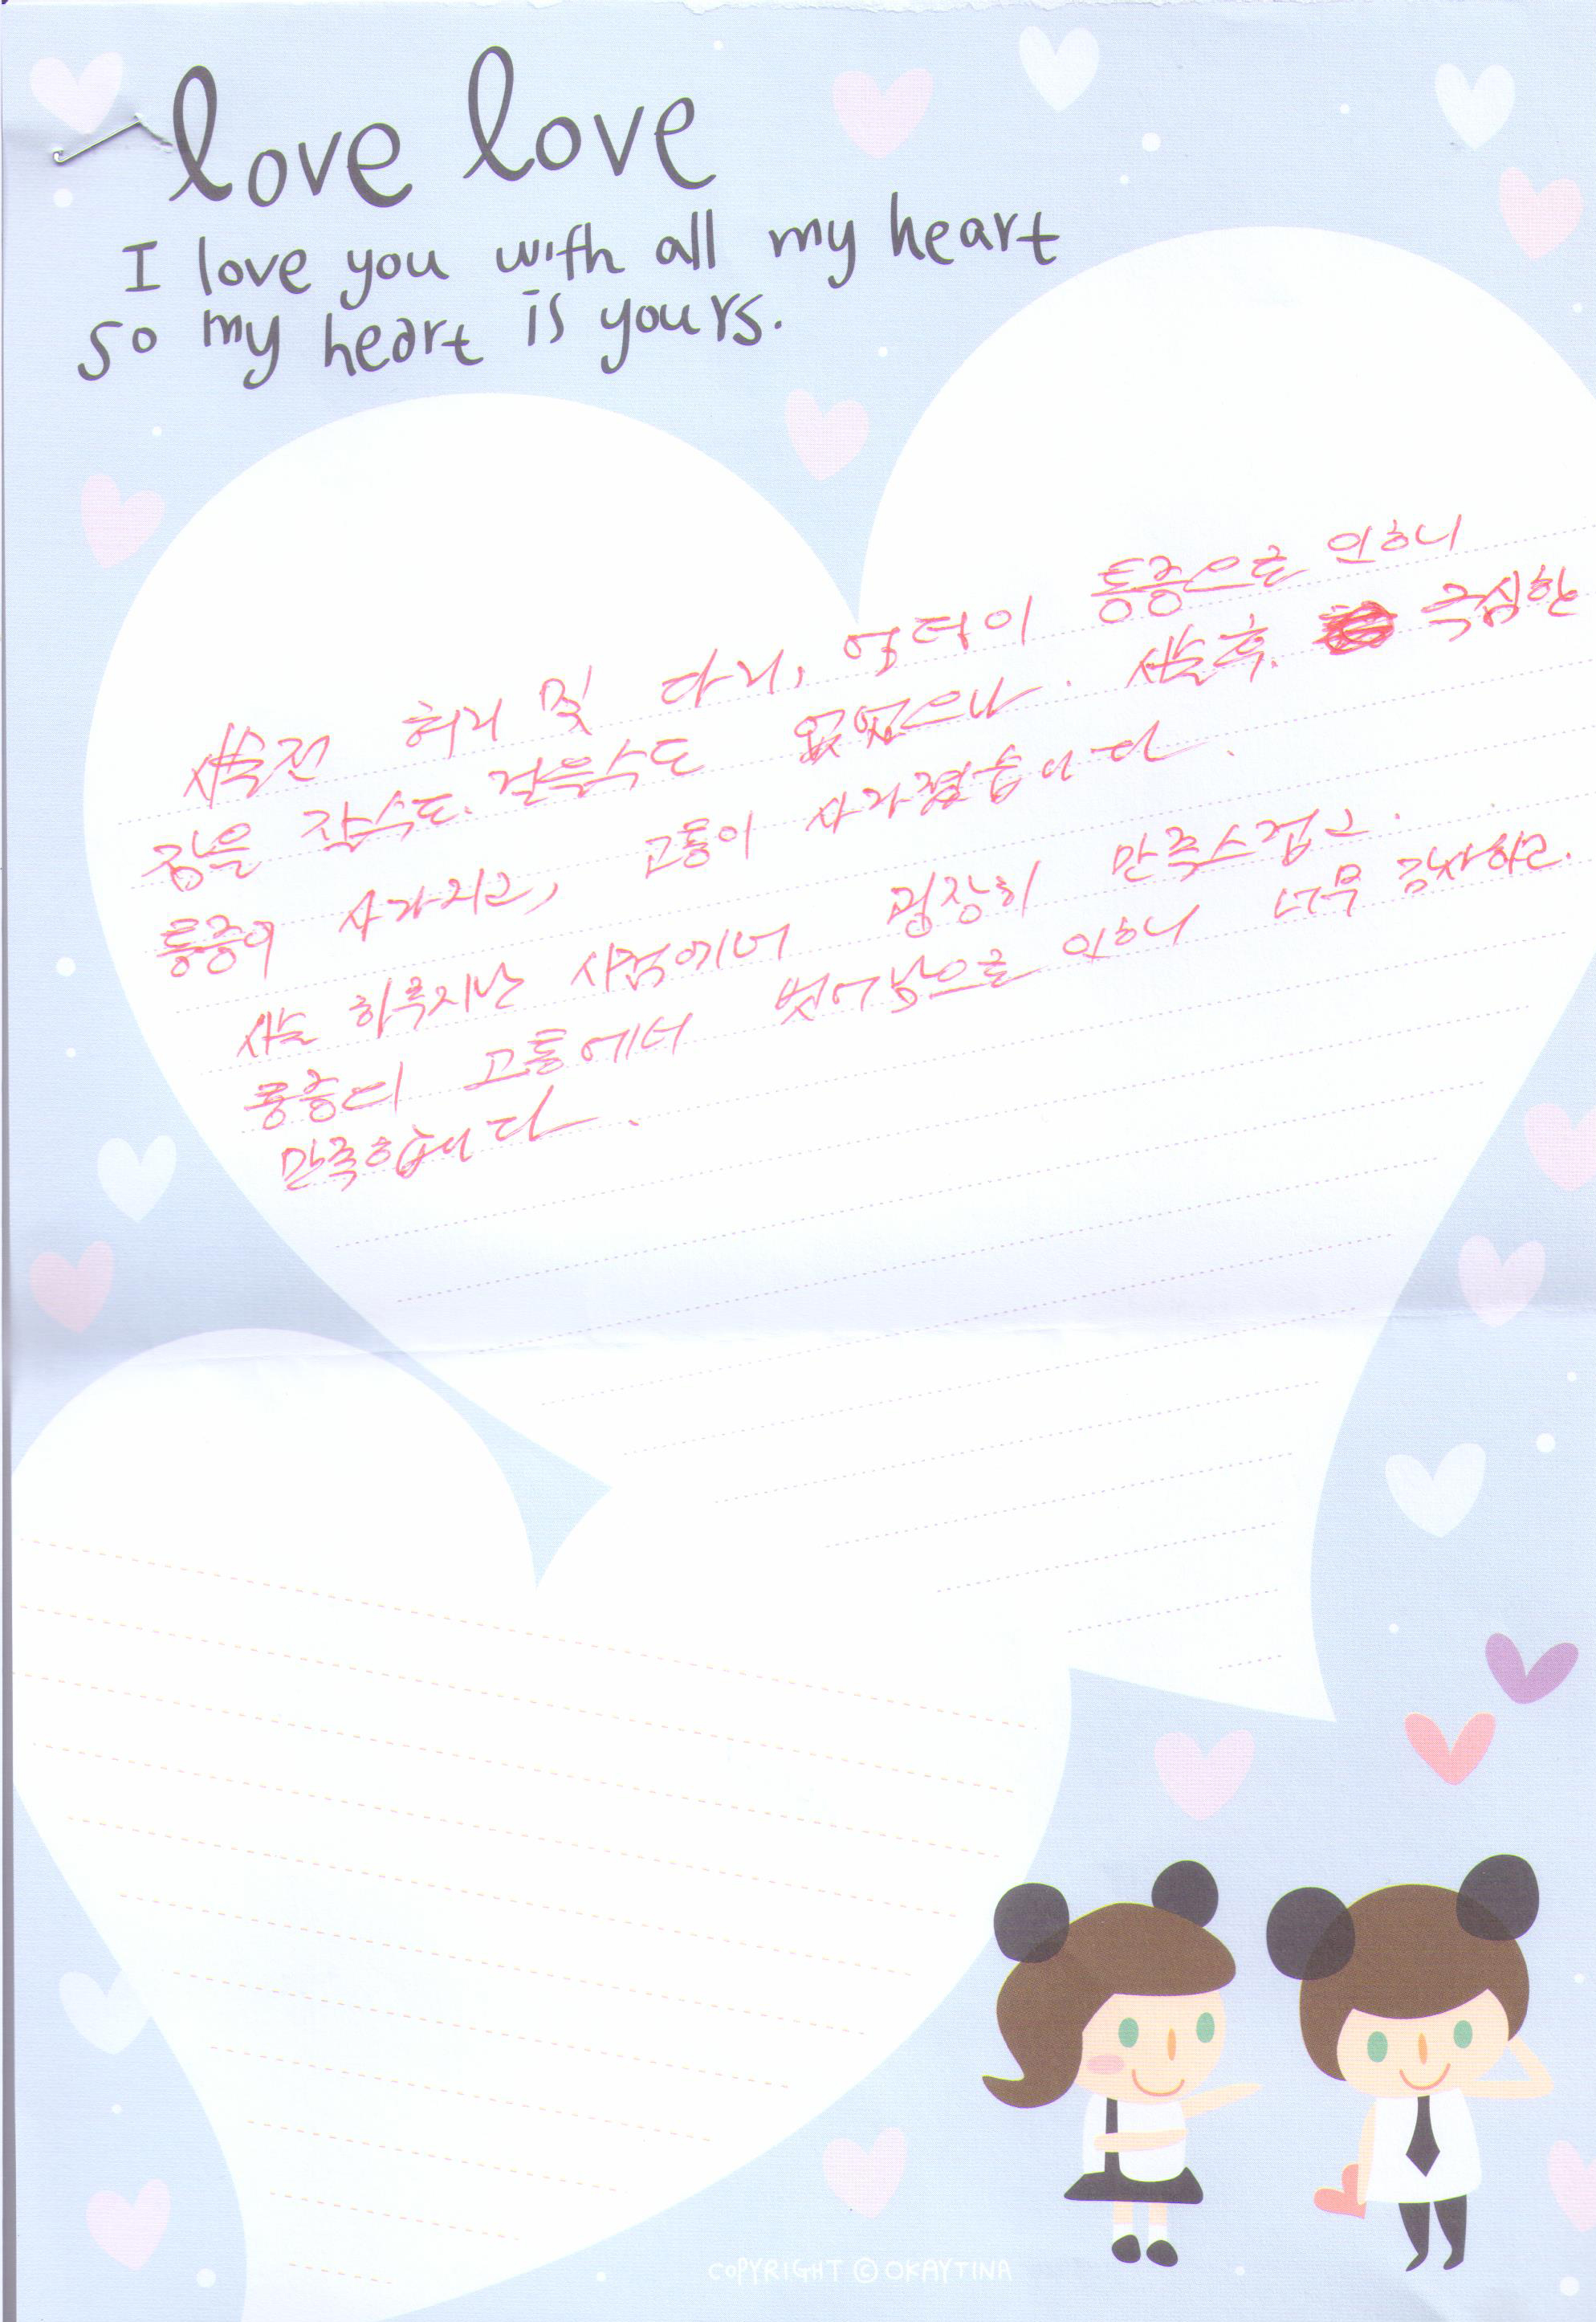 love love
I love you with all my heart
so my heart is yours.
시술전 허리 및 다리, 엉덩이 통증으로 인하니
잠을 잘수도. 걸을수도 없었으나. 시술후. 극심한
통증이 사라지고, 고통이 사라졌습니다.
시술 하루지난 시점에서 굉장히 만족스럽고.
고통에서 벗어남으로 인하니 너무 감사하고.
만족합니다.
COPYRIGHT © OKAYTINA